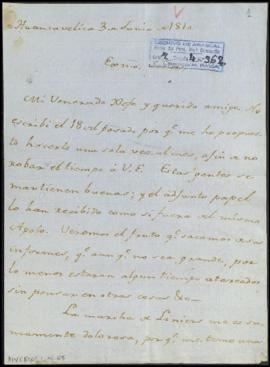 1
Huancavelica 3 de Junio de 1810
Exmo. Señor
Mi Venerado Xefe y querido amigo. No
escribí el 18 del pasado, porqe. me he propuesto
hacerlo una sola vez al mes, a fin de no
robar el tiempo à V.E. Estas gentes se
mantienen buenas; y el adjunto papel
lo han recibido como si fuera del mismo
Apolo. Veremos el fruto qe. sacamos de sus
informes, qe. aunqe. no sea grande, por
lo menos estarán algun tiempo atareados
sin pensar en otras cosas &c.
La marcha de Liniers me es su-
mamente dolorosa, porqe. me temo una